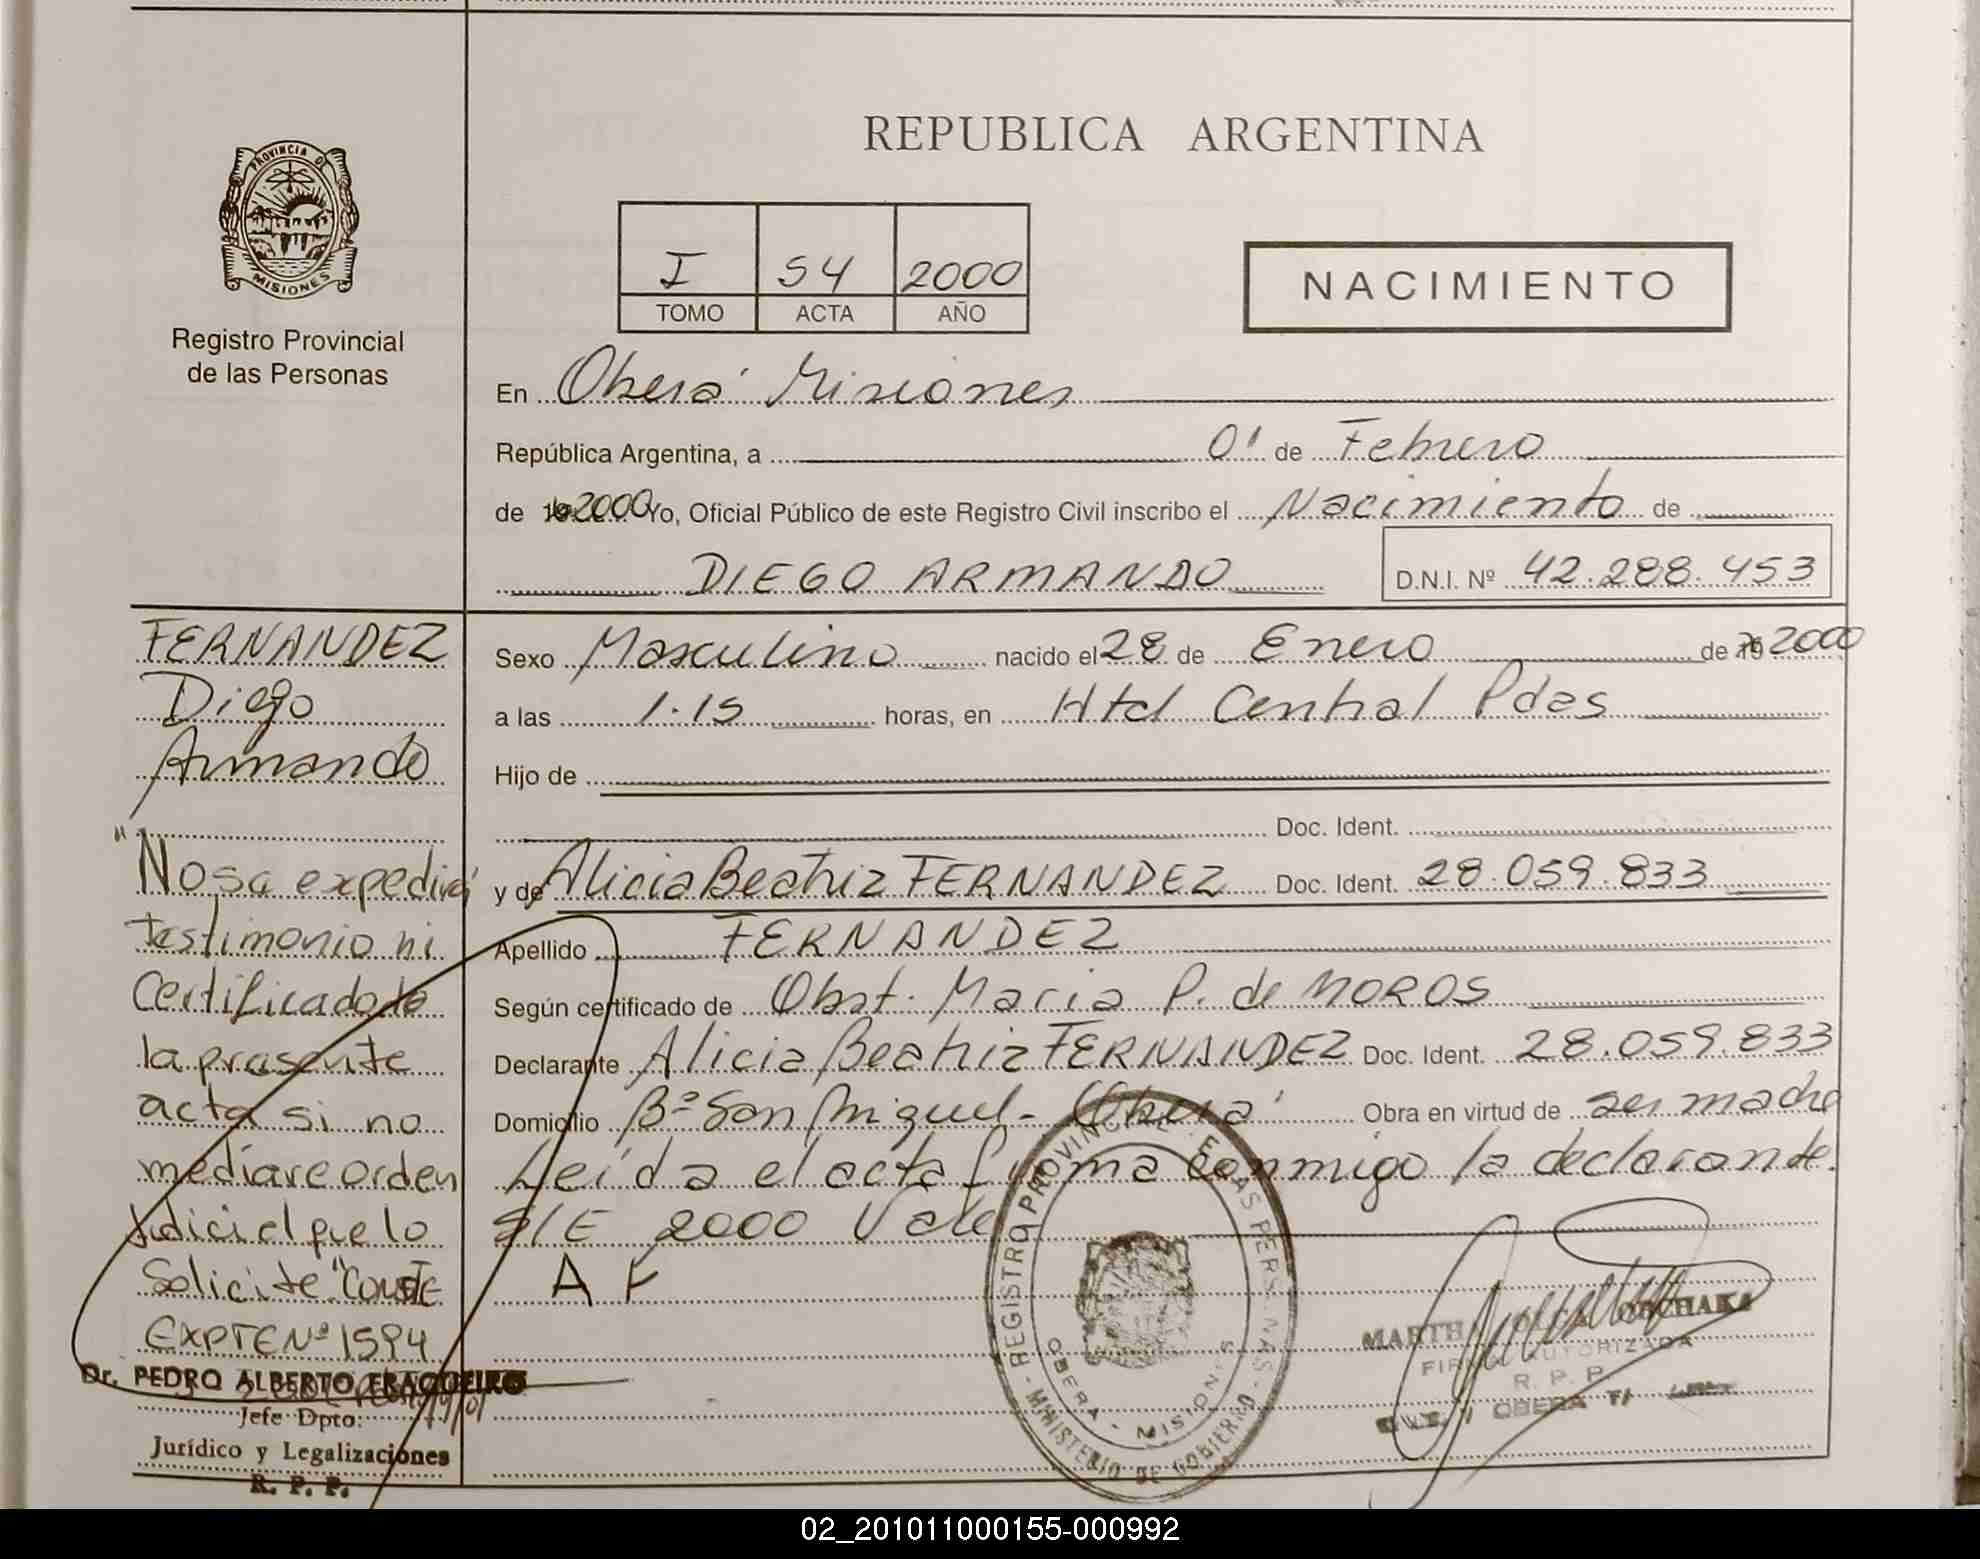 REPUBLICA ARGENTINA
PROVINCIA DE
MISIONES
Registro Provincial
de las Personas
I 54 2000
TOMO ACTA AÑO
NACIMIENTO
En Oberá Misiones
República Argentina, a 01 de Febrero
de 2000 Yo, Oficial Público de este Registro Civil inscribo el Nacimiento de
DIEGO ARMANDO D.N.I. Nº 42.288.453
FERNANDEZ
Diego
Armando
Sexo Masculino nacido el 28 de Enero de 19 2000
a las 1.15 horas, en Htal Central Pdas
Hijo de
Doc. Ident.
y de Alicia Beatriz FERNANDEZ Doc. Ident. 28.059.833
Apellido FERNANDEZ
Según certificado de Obst. Maria P. de MOROS
Declarante Alicia Beatriz FERNANDEZ Doc. Ident. 28.059.833
Domicilio Bº San Miguel - Oberá Obra en virtud de ser madre
Leída el acta firma conmigo la declarante.
S/E 2000 Vale
A F
"No se expedirá
testimonio ni
Certificado de
la presente
acta si no
mediare orden
Judicial que lo
Solicite" CONSTE
EXPTE Nº 1594
Dr. PEDRO ALBERTO FRAQUEIRO
Jefe Dpto:
Jurídico y Legalizaciones
R. P. P.
REGISTRO PROVINCIAL DE LAS PERSONAS
OBERA - MISIONES
MINISTERIO DE GOBIERNO
MARTHA OLGA
FIRMA AUTORIZADA
R. P. P.
OBERA
02_201011000155-000992